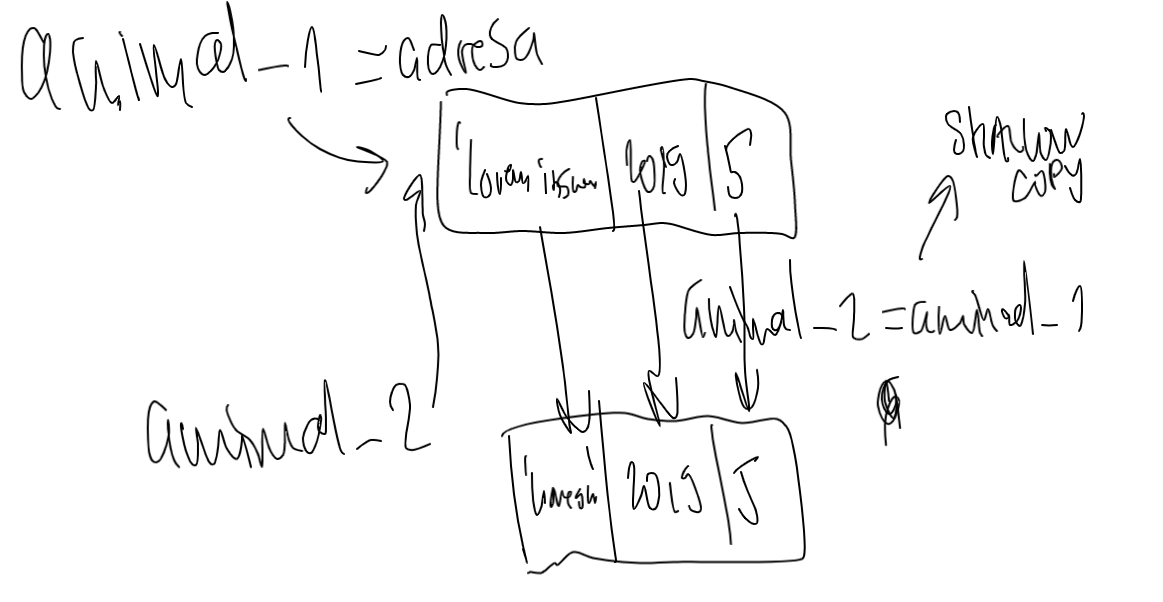 animal_1 = adresa
'Lorem ipsum 2019 5
SHALLOW
COPY
animal_2 = animal_1
animal_2
2019 5